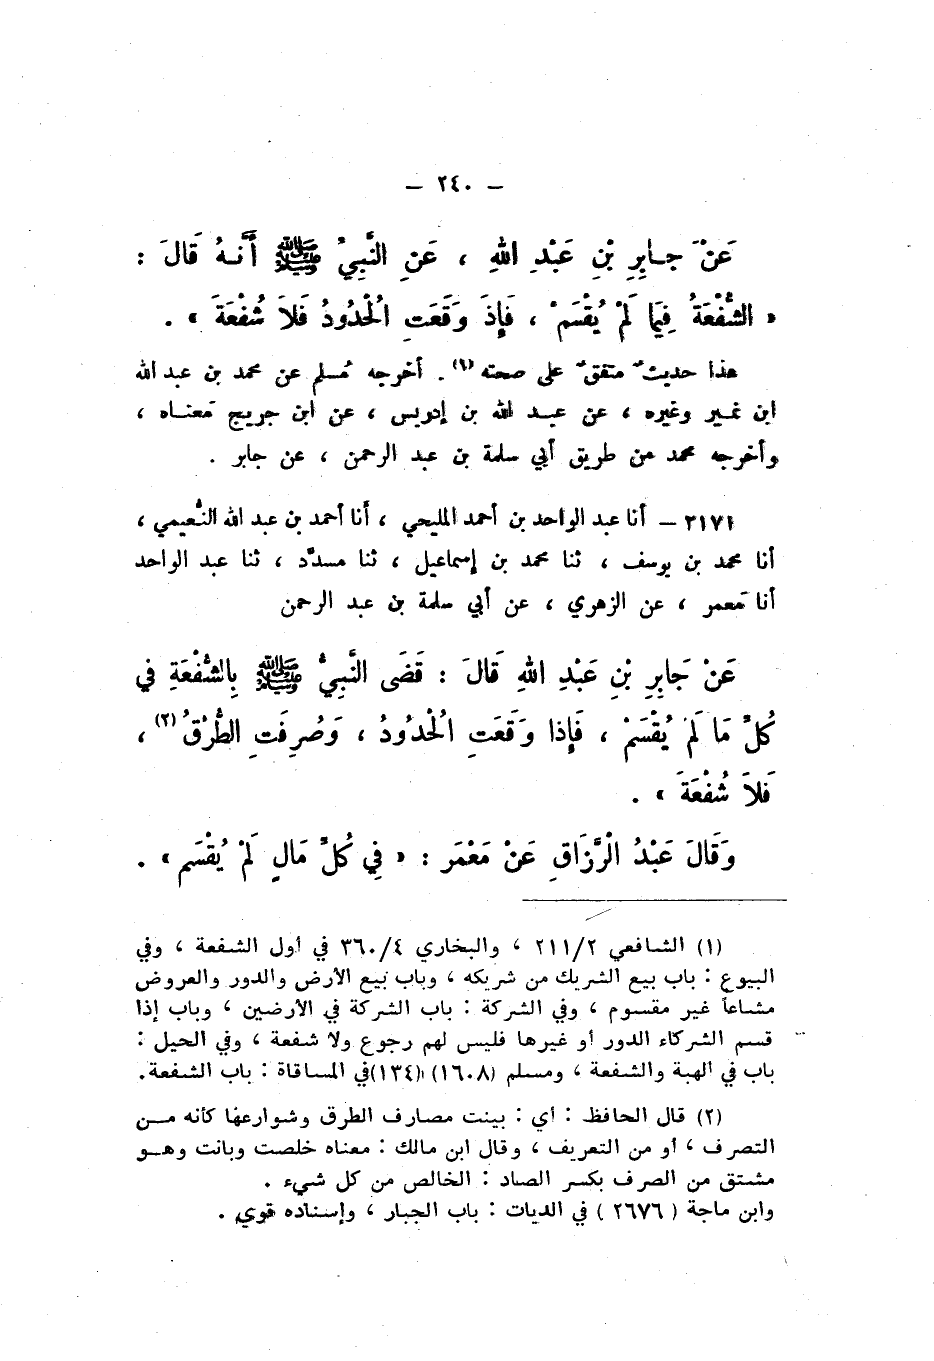 – ٢٤٠ –
عَنْ جَـابِرِ بْنِ عَبْدِ اللهِ ، عَنِ النَّبِيِّ ﷺ أَنَّـهُ قَالَ :
« الشُّفْعَةُ فِيمَا لَمْ يُقْسَمْ ، فَإِذَ وَقَعَتِ الْحُدُودُ فَلاَ شُفْعَةَ » .
هذا حديثٌ متفقٌ على صحته (١) . أخرجه مُسلم عن محمد بن عبد الله
ابن نمـير وغيره ، عن عبـد الله بن إدريس ، عن ابن جريج بمعنـاه ،
وأخرجه محمد من طريق أبي سلمة بن عبد الرحمن ، عن جابر .
٢١٧١ – أنا عبد الواحد بن أحمد المليحي ، أنا أحمد بن عبد الله النُّعيمي ،
أنا محمد بن يوسف ، ثنا محمد بن إسماعيل ، ثنا مسدَّد ، ثنا عبد الواحد
أنا مَعمر ، عن الزهري ، عن أبي سلمة بن عبد الرحمن
عَنْ جَابِرِ بْنِ عَبْدِ اللهِ قَالَ : قَضَى النَّبِيُّ ﷺ بِالشُّفْعَةِ فِي
كُلِّ مَا لَمْ يُقْسَمْ ، فَإِذا وَقَعَتِ الْحُدُودُ ، وَصُرِفَتِ الطُّرُقُ (٢) ،
فَلاَ شُفْعَةَ » .
وَقَالَ عَبْدُ الْرَّزَاقِ عَنْ مَعْمَر : « فِي كُلِّ مَالٍ لَمْ يُقْسَم » .
(١) الشافعي ٢١١/٢ ، والبخاري ٣٦٠/٤ في أول الشفعة ، وفي
البيوع : باب بيع الشريك من شريكه ، وباب بيع الأرض والدور والعروض
مشاعاً غير مقسوم ، وفي الشركة : باب الشركة في الأرضين ، وباب إذا
قسم الشركاء الدور أو غيرها فليس لهم رجوع ولا شفعة ، وفي الحيل :
باب في الهبة والشفعة ، ومسلم (١٦٠٨) (١٣٤)في المساقاة : باب الشفعة.
(٢) قال الحافظ : أي : بينت مصارف الطرق وشوارعها كأنه مــن
التصرف ، أو من التعريف ، وقال ابن مالك : معناه خلصت وبانت وهــو
مشتق من الصرف بكسر الصاد : الخالص من كل شيء .
وابن ماجة ( ٢٦٧٦ ) في الديات : باب الجبار ، وإسناده قوي .